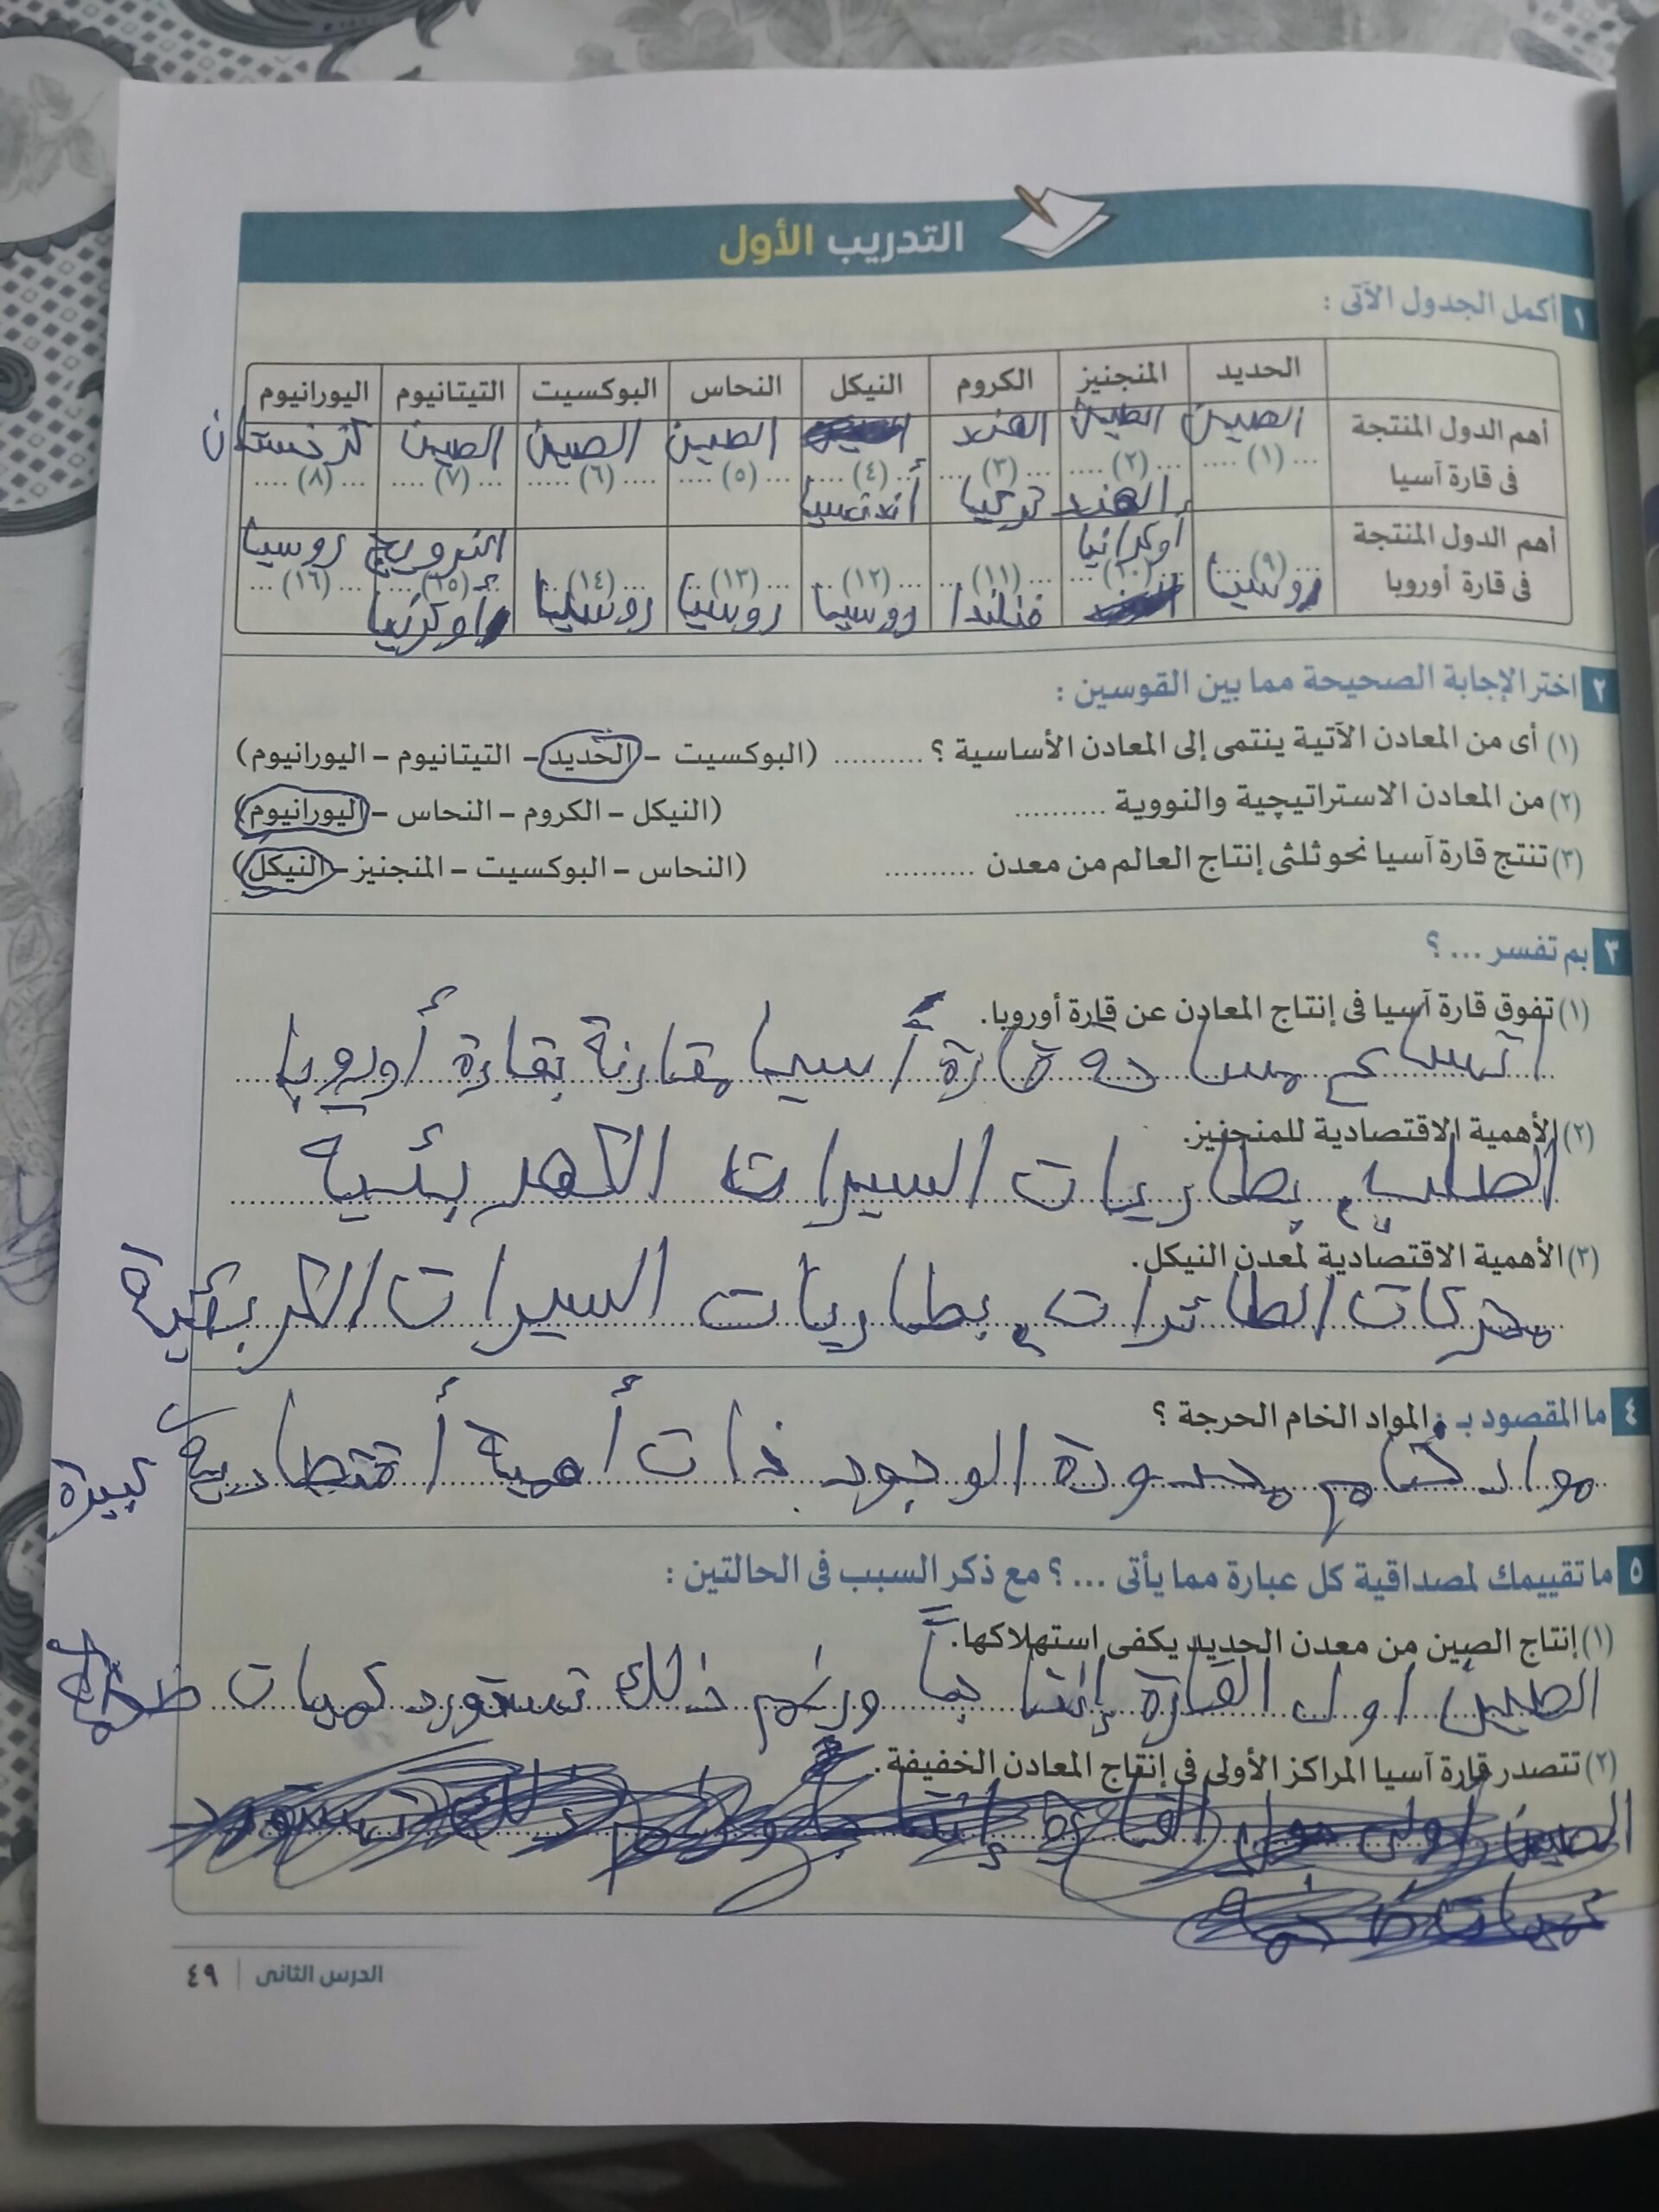 التدريب الأول
١ أكمل الجدول الآتى :
الحديد المنجنيز الكروم النيكل النحاس البوكسيت التيتانيوم اليورانيوم
أهم الدول المنتجة فى قارة آسيا
الصين الصين الهند الصين الصين الصين كزخستان
... (١) ... ... (٢) ... ... (٣) ... ... (٤) ... ... (٥) ... ... (٦) ... ... (٧) ... ... (٨) ...
الهند تركيا
أهم الدول المنتجة فى قارة أوروبا
أوكرانيا النرويج روسيا
... (٩) ... ... (١٠) ... ... (١١) ... ... (١٢) ... ... (١٣) ... ... (١٤) ... ... (١٥) ... ... (١٦) ...
روسيا فنلندا روسيا روسيا روسيا
٢ اختر الإجابة الصحيحة مما بين القوسين :
(١) أى من المعادن الآتية ينتمى إلى المعادن الأساسية ؟ .......... (البوكسيت – الحديد – التيتانيوم – اليورانيوم)
(٢) من المعادن الاستراتيچية والنووية .......... (النيكل – الكروم – النحاس – اليورانيوم)
(٣) تنتج قارة آسيا نحو ثلثى إنتاج العالم من معدن .......... (النحاس – البوكسيت – المنجنيز – النيكل)
٣ بم تفسر ... ؟
(١) تفوق قارة آسيا فى إنتاج المعادن عن قارة أوروبا.
اتساع مساحه قارة أسيا مقارنة بقارة أوروبا
(٢) الأهمية الاقتصادية للمنجنيز.
الصلب، بطاريات السيرات الكهربئية
(٣) الأهمية الاقتصادية لمعدن النيكل.
محركات الطائرات، بطاريات السيرات الكربئية
٤ ما المقصود بـ : المواد الخام الحرجة ؟
مواد خام محدودة الوجود ذات أهمية أقتصادية كبيرة
٥ ما تقييمك لمصداقية كل عبارة مما يأتى ... ؟ مع ذكر السبب فى الحالتين :
(١) إنتاج الصين من معدن الحديد يكفى استهلاكها.
الصين اول القارة إنتاجاً ورغم ذلك تستورد كميات
(٢) تتصدر قارة آسيا المراكز الأولى فى إنتاج المعادن الخفيفة.
الدرس الثانى | ٤٩